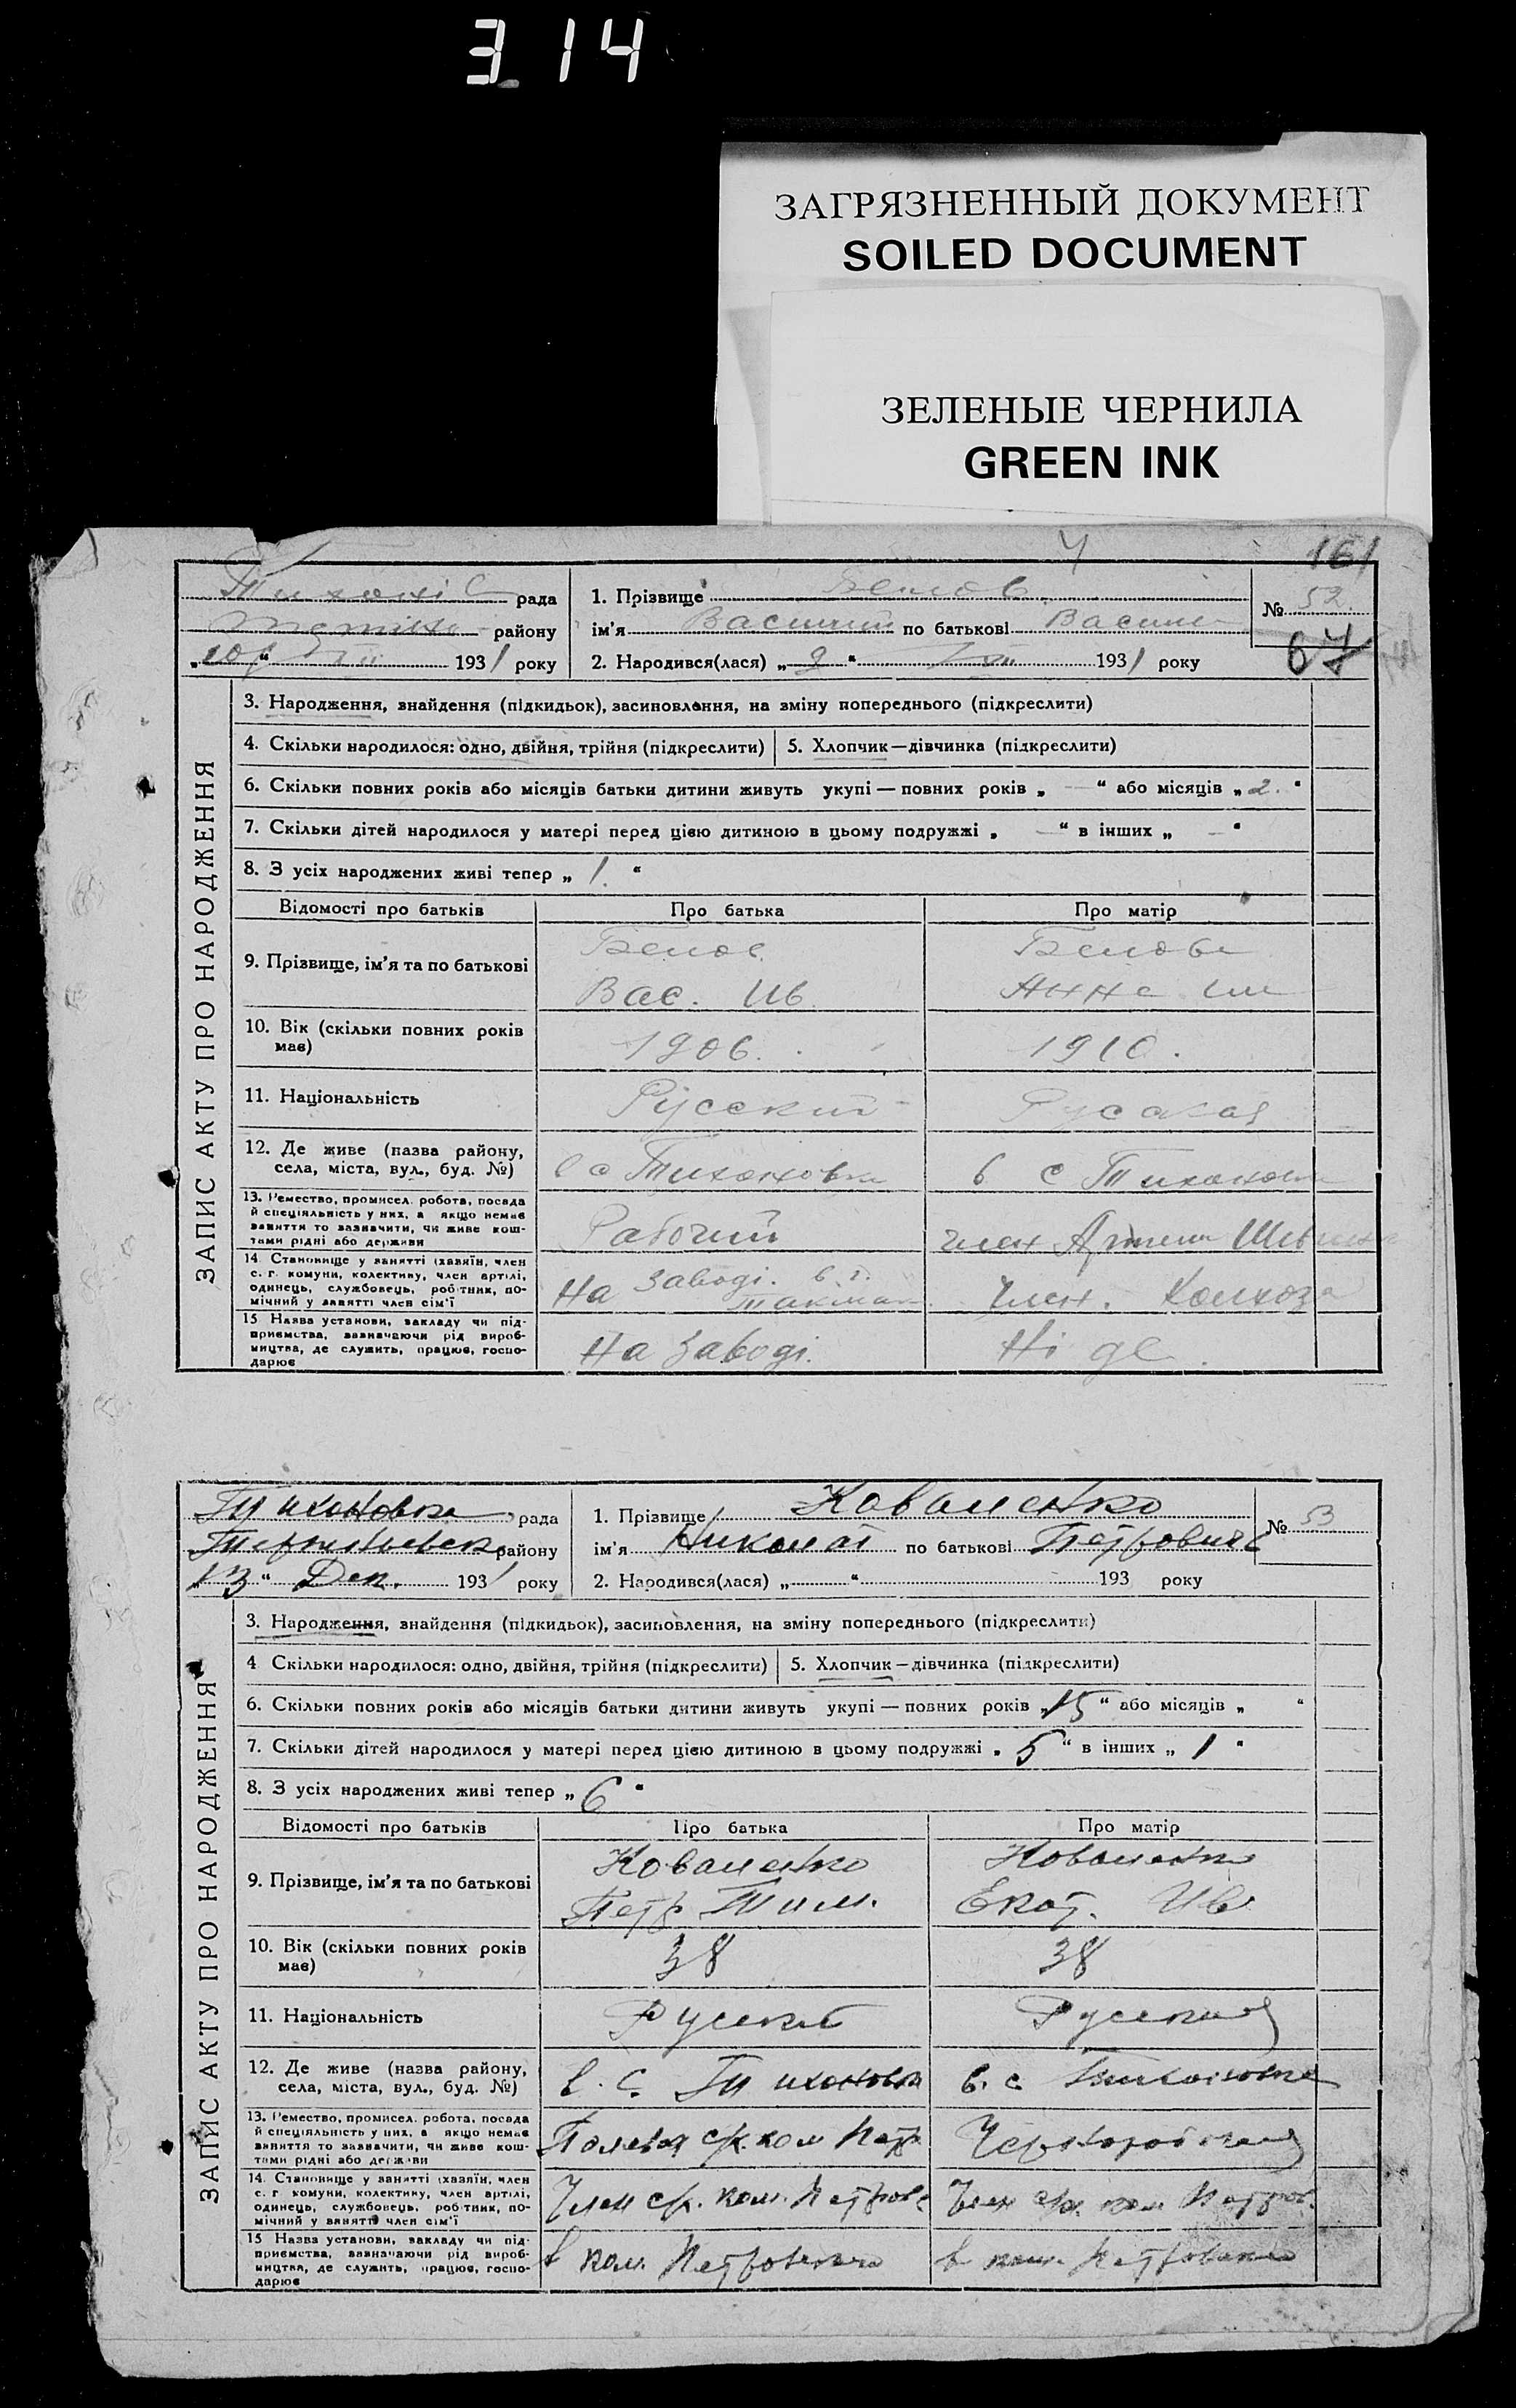 314
ЗАГРЯЗНЕННЫЙ ДОКУМЕНТ
SOILED DOCUMENT
ЗЕЛЕНЫЕ ЧЕРНИЛА
GREEN INK
161
рада
району
193 1 року
1. Прізвище Белов
ім'я Василий по батькові Васил
2. Народився(лася) „ 9 “ 193 1 року
№ 52.
67
ЗАПИС АКТУ ПРО НАРОДЖЕННЯ
3. Народження, знайдення (підкидьок), засиновлення, на зміну попереднього (підкреслити)
4. Скільки народилося: одно, двійня, трійня (підкреслити) 5. Хлопчик—дівчинка (підкреслити)
6. Скільки повних років або місяців батьки дитини живуть укупі — повних років „ — “ або місяців „ 2. “
7. Скільки дітей народилося у матері перед цією дитиною в цьому подружжі „ — “ в інших „ — “
8. З усіх народжених живі тепер „ 1. “
Відомості про батьків Про батька Про матір
9. Прізвище, ім'я та по батькові
Белов Белова
Вас. Ив. Анна
10. Вік (скільки повних років має)
1906. 1910.
11. Національність Русский Русская
12. Де живе (назва району,
села, міста, вул., буд. №)
в с Тихоновка в с Тихоновка
13. Ремество, промисел. робота, посада
й спеціяльність у них, а якщо немає
заняття то зазначити, чи живе кош-
тами рідні або держави
Рабочий член Артели
14. Становище у занятті (хазяїн, член
с. г. комуни, колективу, член артілі,
одинець, службовець, робітник, по-
мічний у занятті член сім'ї
На заводі. в г. Токмак Член. Колхоза
15 Назва установи, закладу чи під-
приємства, зазначаючи рід вироб-
ництва, де служить, працює, госпо-
дарює
На заводі. Ні де.
Тихоновка рада
району
„ 13 “ Дек. 193 1 року
1. Прізвище Коваленко
ім'я Николай по батькові Петрович
2. Народився(лася) „ “ 193 року
№ 53
ЗАПИС АКТУ ПРО НАРОДЖЕННЯ
3. Народження, знайдення (підкидьок), засиновлення, на зміну попереднього (підкреслити)
4 Скільки народилося: одно, двійня, трійня (підкреслити) 5. Хлопчик—дівчинка (підкреслити)
6. Скільки повних років або місяців батьки дитини живуть укупі — повних років „ 15 “ або місяців „ “
7. Скільки дітей народилося у матері перед цією дитиною в цьому подружжі „ 5 “ в інших „ 1 “
8. З усіх народжених живі тепер „ 6 “
Відомості про батьків Про батька Про матір
9. Прізвище, ім'я та по батькові
Коваленко Коваленко
Петр Тим. Екат. Ив
10. Вік (скільки повних років має)
38 38
11. Національність Русский Русская
12. Де живе (назва району,
села, міста, вул., буд. №)
в. с. Тихоновка в. с. Тихоновка
13. Ремество, промисел. робота, посада
й спеціяльність у них, а якщо немає
заняття то зазначити, чи живе кош-
тами рідні або держави
Чернорабочая
14. Становище у занятті (хазяїн, член
с. г. комуни, колективу, член артілі,
одинець, службовець, робітник, по-
мічний у занятті член сім'ї
Член ср. ком. Петров Член ср. ком Петров.
15 Назва установи, закладу чи під-
приємства, зазначаючи рід вироб-
ництва, де служить, працює, госпо-
дарює
в ком. Петровского в ком. Петровского